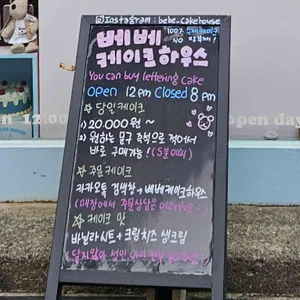 @Instagram : bebe_cakehouse
베베
케이크하우스
100%
NO
You can buy lettering cake
open 12pm Closed 8pm
☆ 당일케이크
1) 20,000원~
2) 원하는 문구 즉석으로 적어서
바로 구매가능! (5분이내)
☆ 주문케이크
카카오톡 검색창→베베케이크하우스
(매장에서 주문상담은
☆ 케이크 맛
바닐라시트 + 크림치즈 생크림
open day
12:00